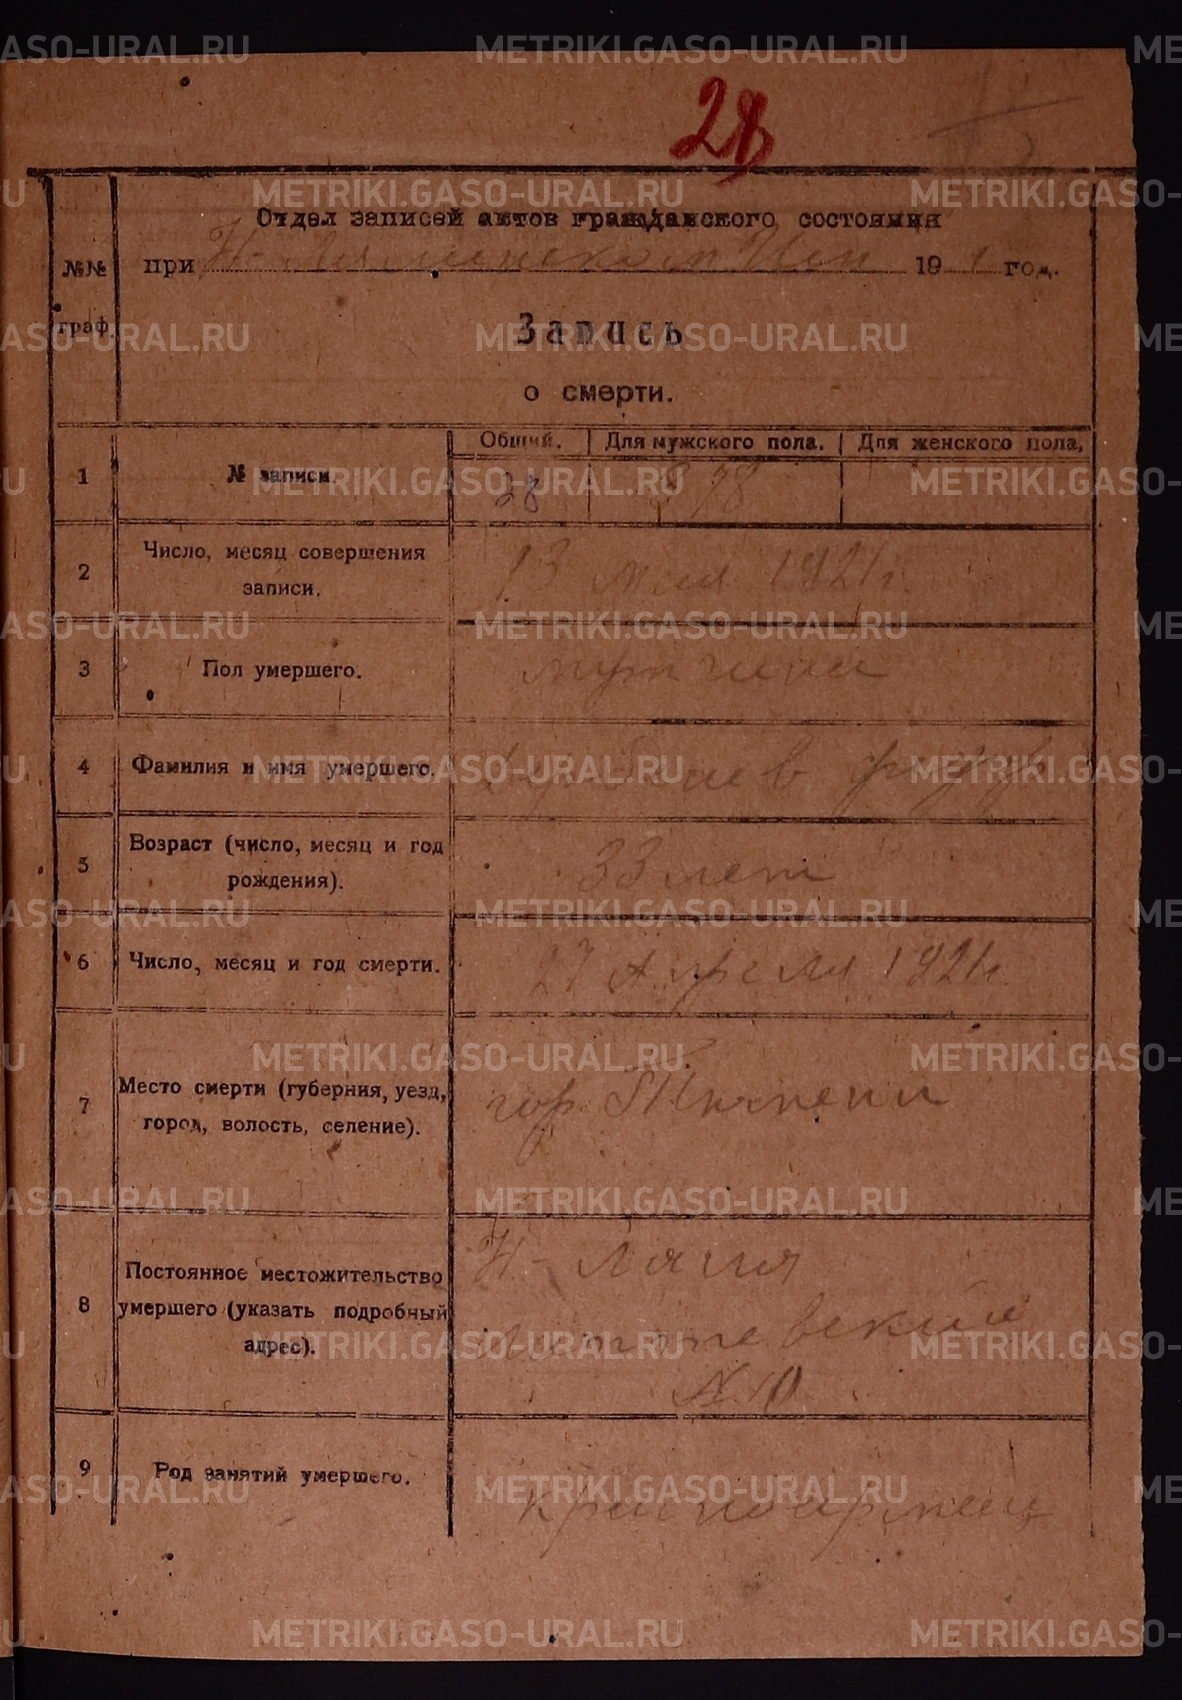 28
Отдел записей актов гражданского состояния
при Н- Исп 19 1 год.
№№ граф.
Запись
о смерти.
Общий. Для мужского пола. Для женского пола.
1 № записи. 28
2 Число, месяц совершения записи. 13 мая 1921 г.
3 Пол умершего. мужчина
4 Фамилия и имя умершего.
5 Возраст (число, месяц и год рождения). 33 лет
6 Число, месяц и год смерти. 27 Апреля 1921 г.
7 Место смерти (губерния, уезд, город, волость, селение). гор.
8 Постоянное местожительство умершего (указать подробный адрес). Н- Ляля
№ 10
9 Род занятий умершего. красноармеец
METRIKI.GASO-URAL.RU